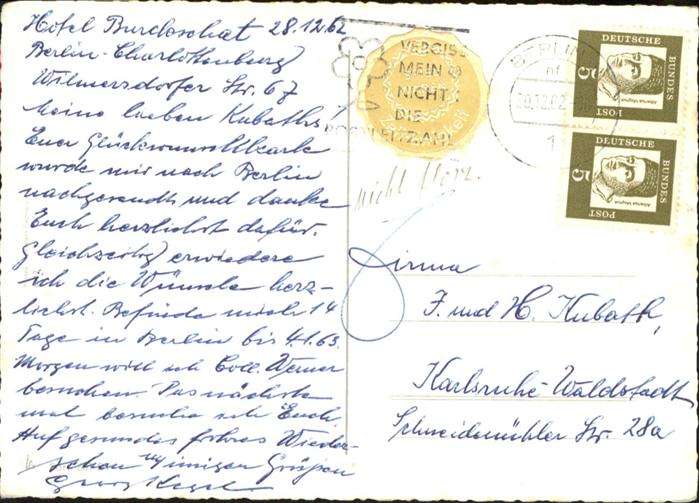 Hotel Burckschat 28.12.62
Berlin-Charlottenburg
Wilmersdorfer Str. 67
Meine lieben Kubaths!
Euer Glückwunschkarte
wurde mir nach Berlin
nachgesandt und danke
Euch herzlichst dafür.
Gleichzeitig erwiedere
ich die Wünsche herz-
lichst. Befinde mich 14
Tage in Berlin bis 4.1.63.
Morgen will ich Coll. Werner
besuchen. Das nächste
mal besuche ich Euch
Auf gesundes frohes Wieder-
sehen mit innigen Grüßen
Georg
VERGISS
MEIN
NICHT
DIE
POSTLEITZAHL
BERLIN
1
DEUTSCHE
BUNDES
POST
5
Albertus Magnus
DEUTSCHE
BUNDES
POST
5
Albertus Magnus
nicht
Firma
F. und H. Kubath,
Karlsruhe-Waldstadt
Schneidemühler Str. 28a